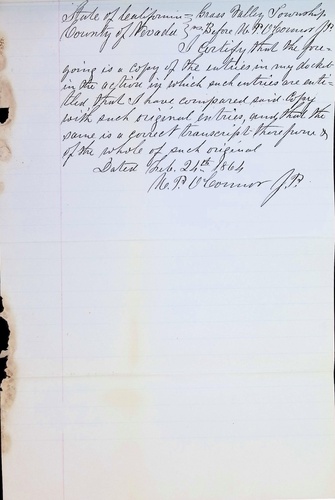 State of California } Grass Valley Township
County of Nevada } ss Before M. P. O'Connor J.P.
I Certify that the fore-
going is a copy of the entries in my docket
in the action in which such entries are enti-
tled that I have compared said copy
with such original entries, and that the
same is a correct transcript therefrom &
of the whole of such original
Dated Feb. 24th 1864
M. P. O'Connor J.P.